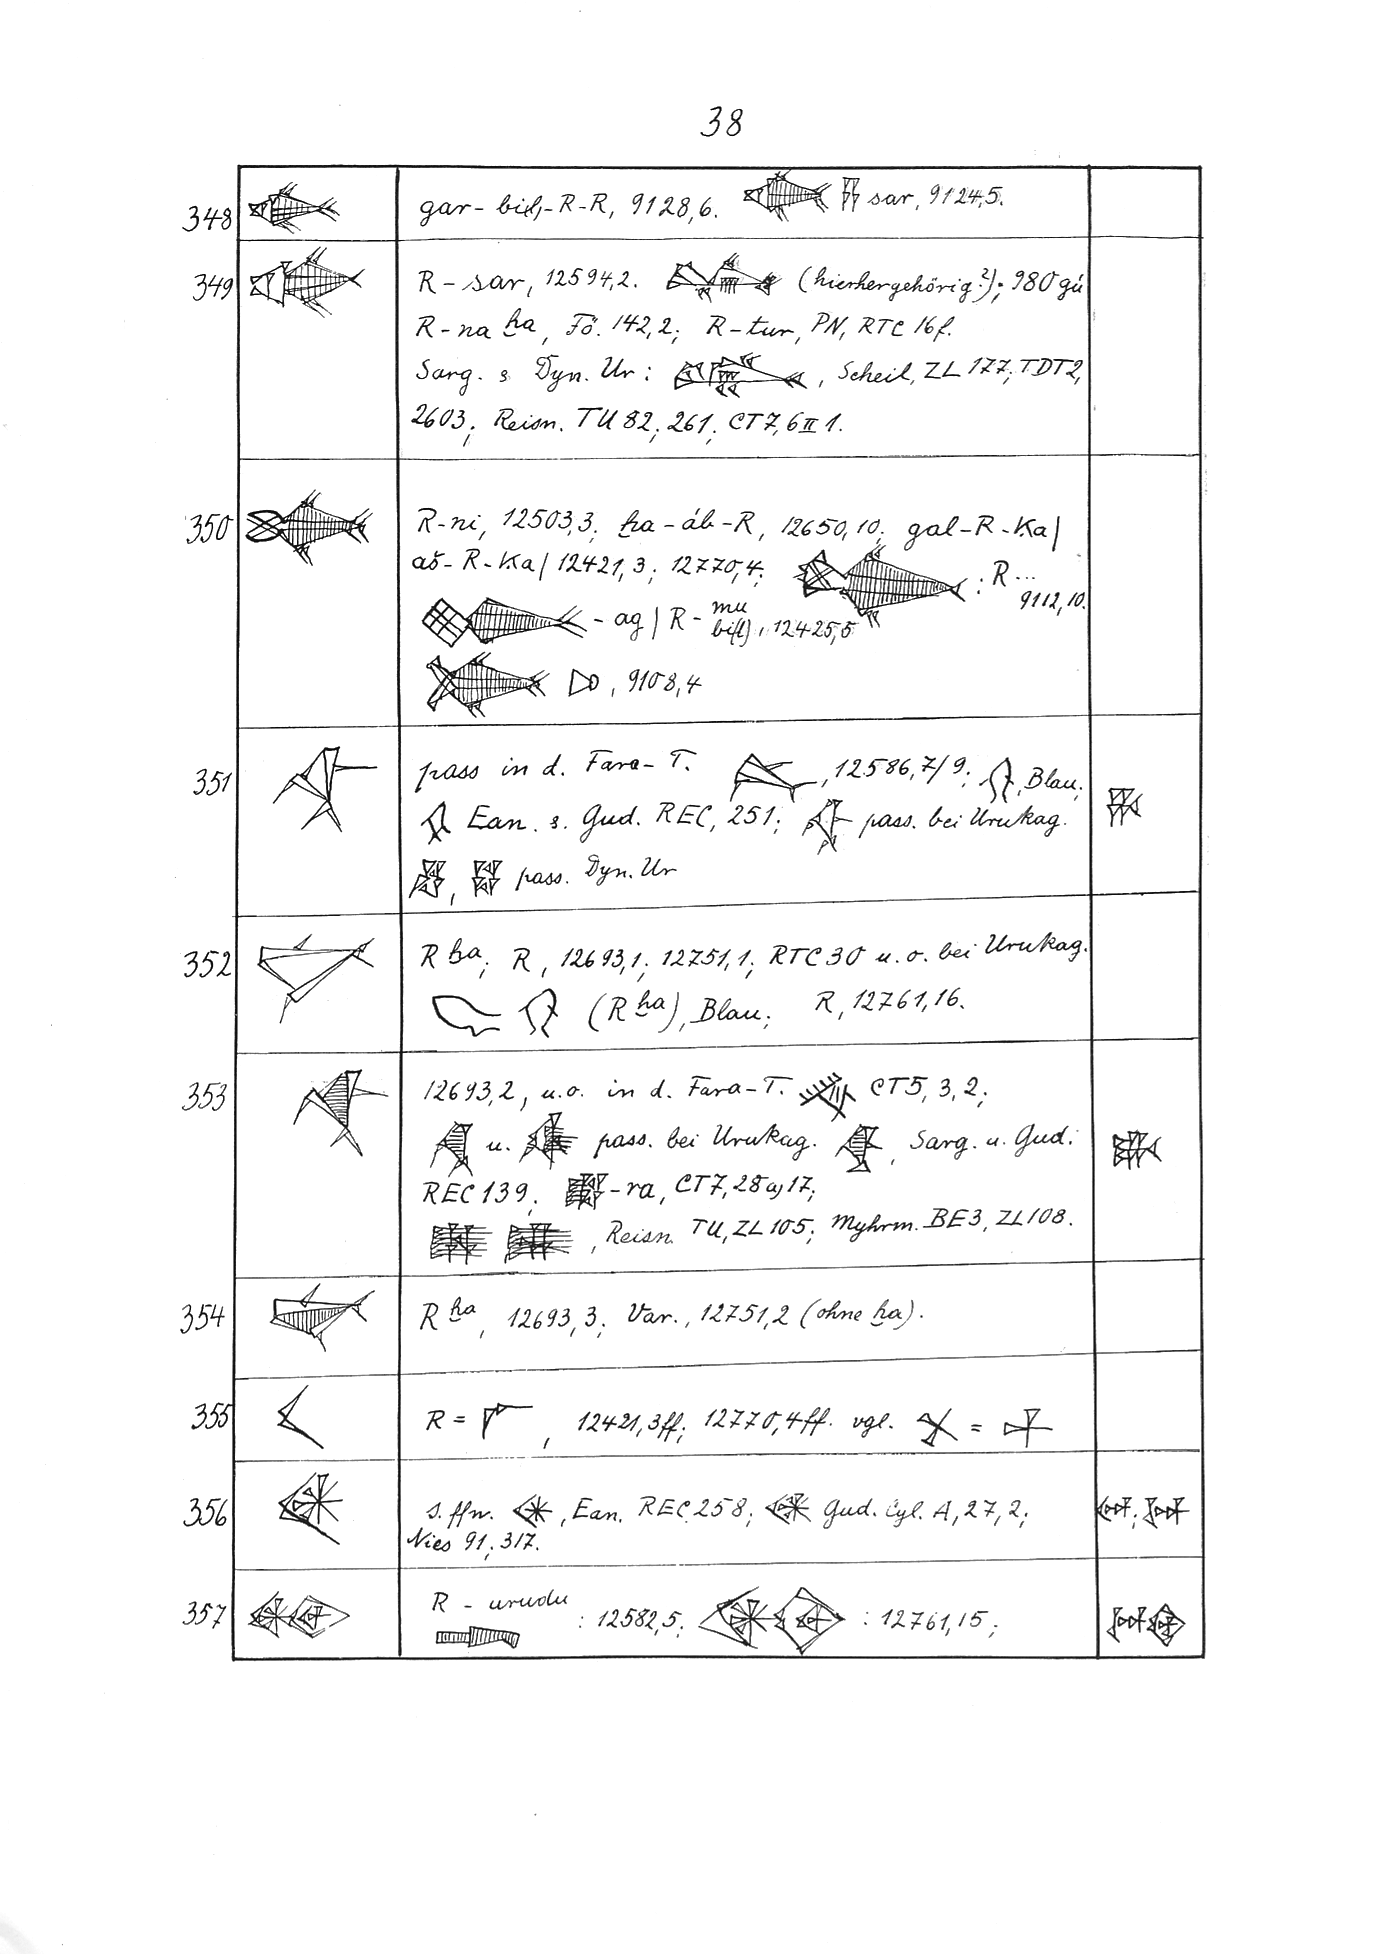 38
348 gar-biḫ-R-R, 9128,6. sar, 9124,5.
349 R-sar, 12594,2. (hierhergehörig?); 980 gú
R-na ḫa, Fö. 142,2; R-tur, PN, RTC 16f.
Sarg. s Dyn. Ur: , Scheil, ZL 177; TDT2,
2603; Reisn. TU 82; 261; CT7,6 II 1.
350 R-ni, 12503,3; ḫa-áb-R, 12650,10; gal-R-Ka/
aš-R-Ka/ 12421,3; 12770,4; : R...
9112,10.
-ag/ R- mu
, 12425,5
, 9108,4
351 pass in d. Fara-T. , 12586,7/9; , Blau;
Ean. s. Gud. REC, 251; pass. bei Urukag.
, pass. Dyn. Ur
352 R ḫa; R, 12693,1; 12751,1; RTC 30 u. o. bei Urukag.
(R ḫa), Blau; R, 12761,16.
353 12693,2, u. o. in d. Fara-T. CT5, 3, 2;
u. pass. bei Urukag. , Sarg. u. Gud:
REC 139; -ra, CT7, 28 a) 17;
, Reisn. TU, ZL 105; Myhrm. BE3, ZL 108.
354 R ḫa, 12693,3; Var., 12751,2 (ohne ḫa).
355 R = , 12421,3ff; 12770,4ff. vgl. =
356 s. ffn. , Ean. REC 258; Gud. Cyl. A, 27, 2;
Nies 91; 317.
357 R - urudu
: 12582,5; : 12761,15;